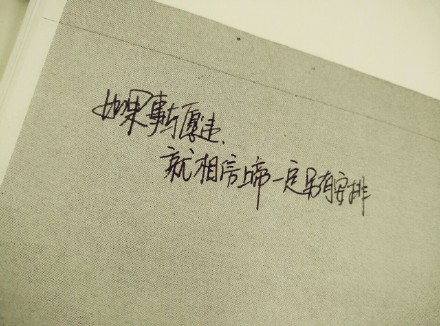 如果事与愿违、
就相信上帝一定另有安排